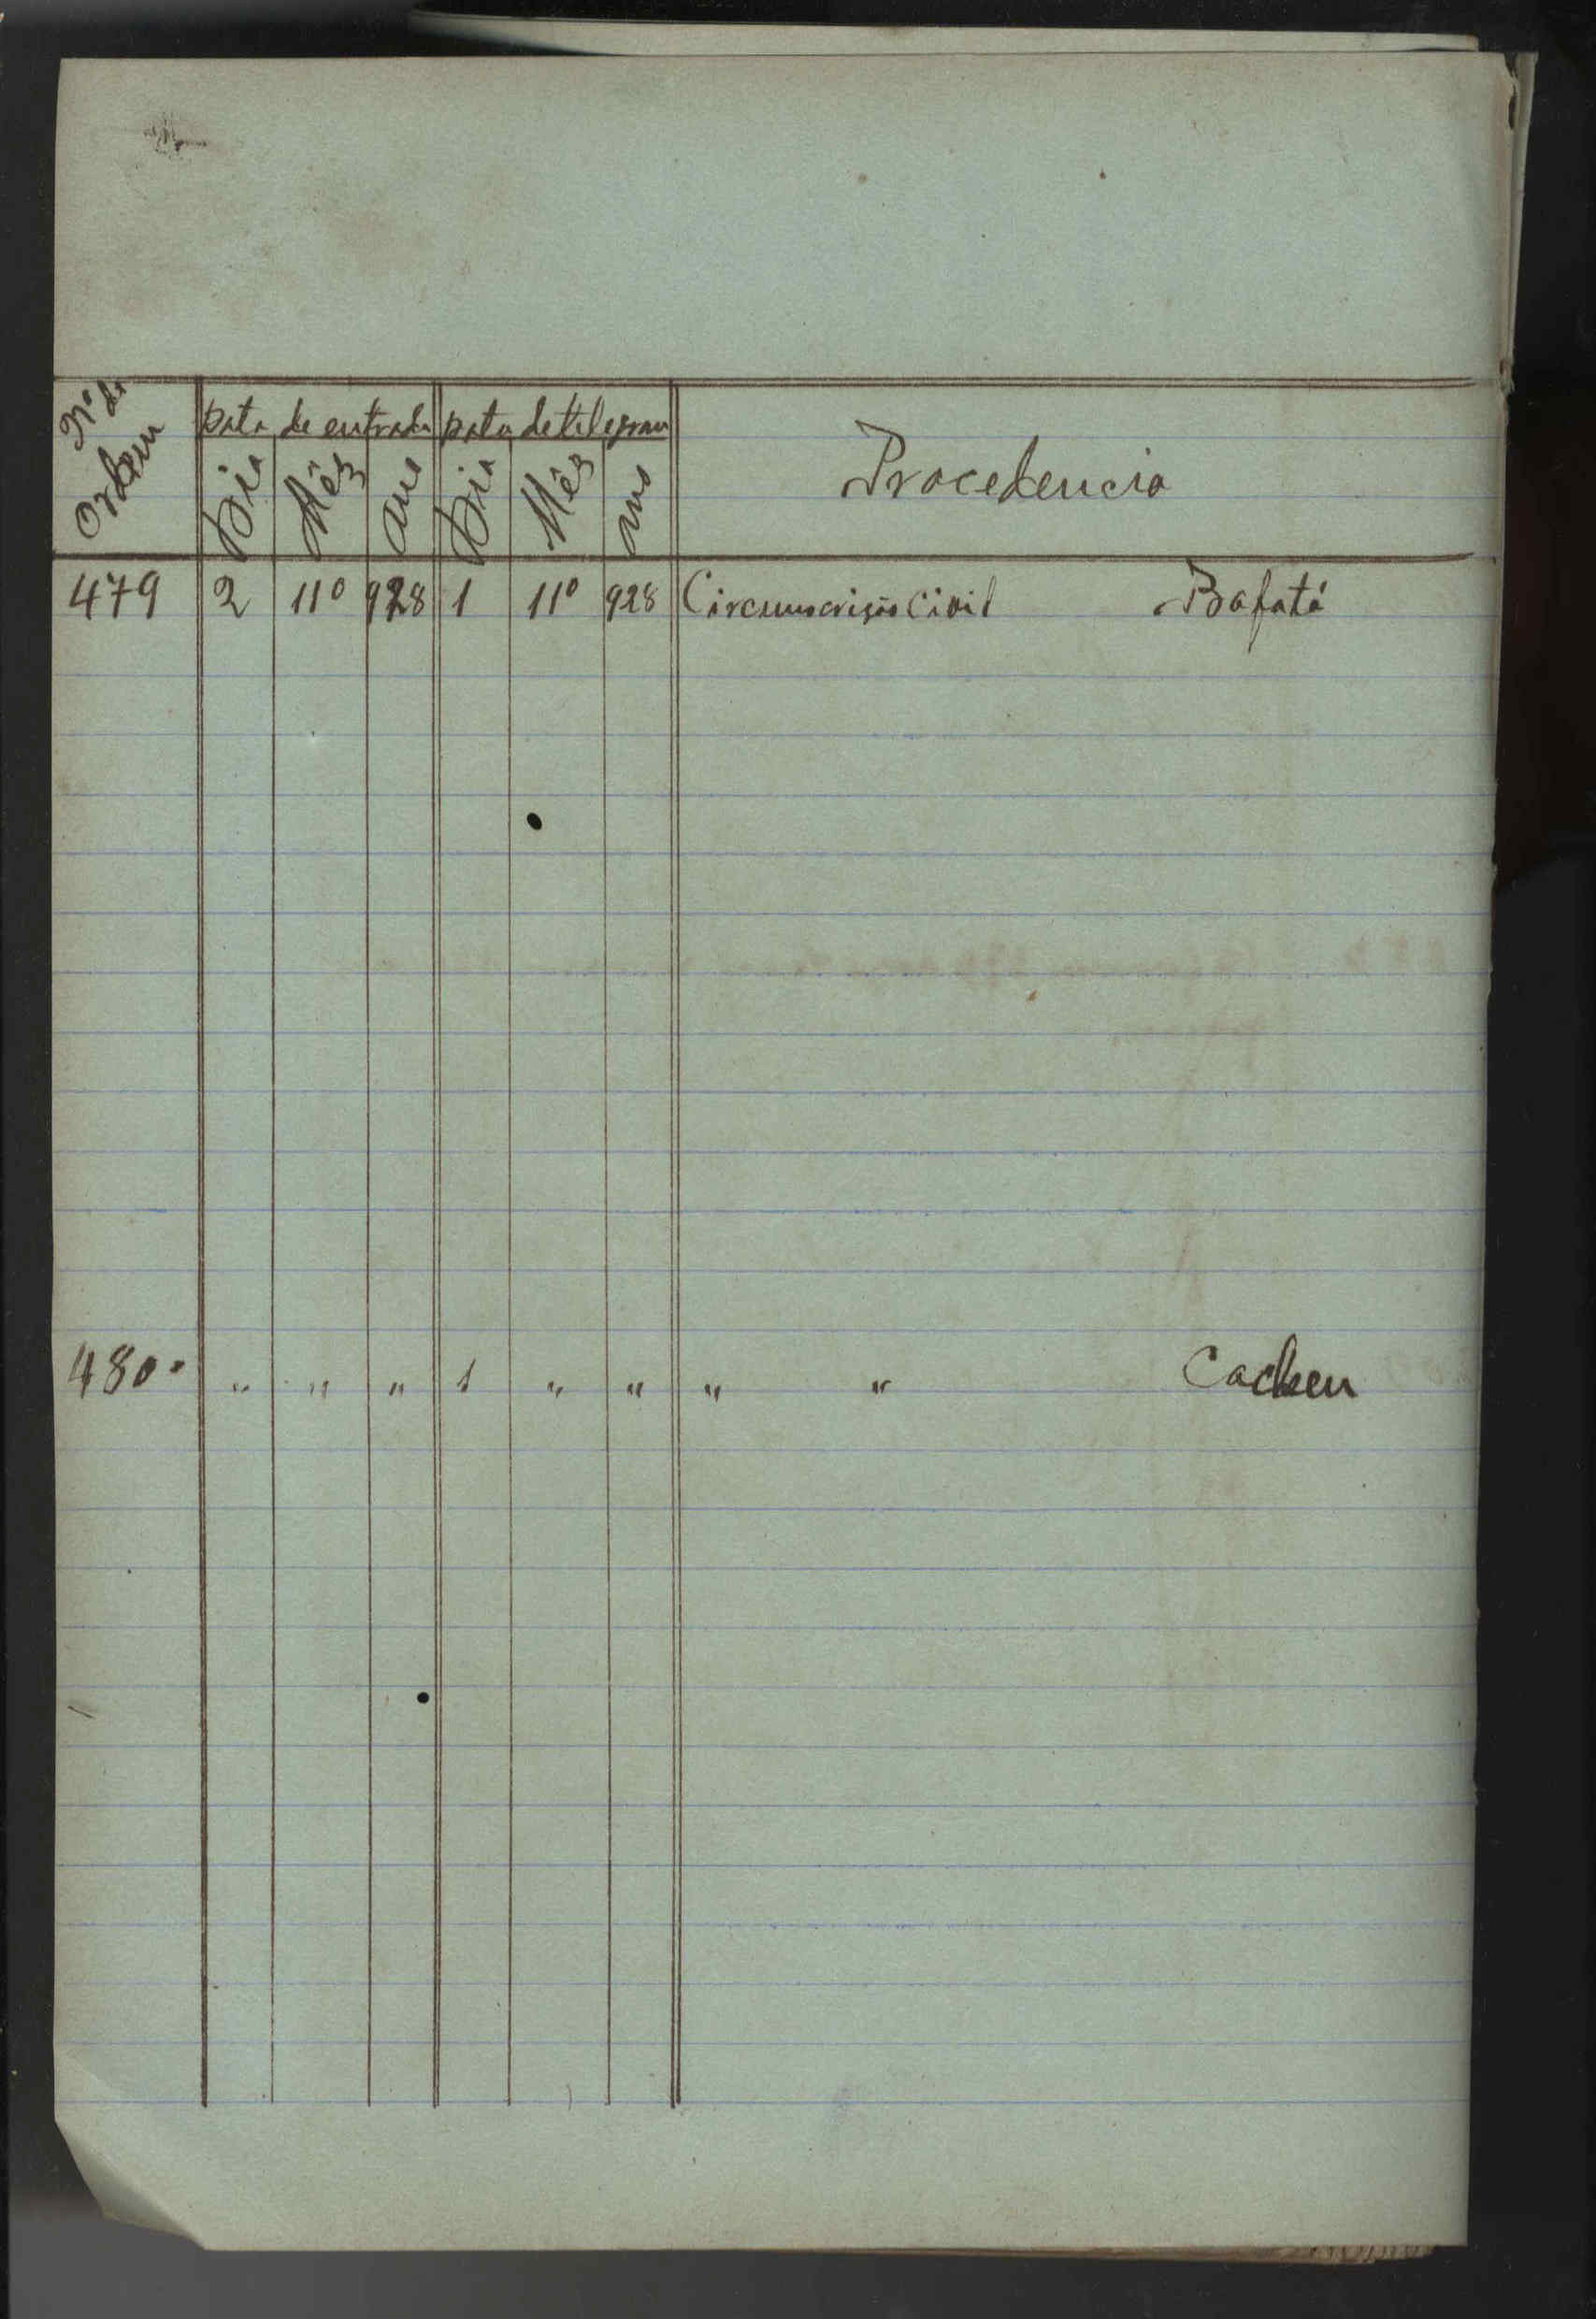 Nº de Ordem	Data de entrada	Data de telegram	Procedencia
Dia	Mês	ano	Dia	Mês	ano
479	2	11º	928	1	11º	928	Circumscrição Civil	Bafatá
480.	"	"	"	1	"	"	"	"	Cacheu